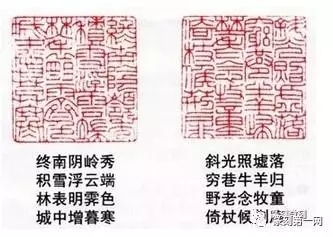 终南阴岭秀
积雪浮云端
林表明霁色
城中增暮寒
斜光照墟落
穷巷牛羊归
野老念牧童
倚杖候荆扉
篆刻第一网